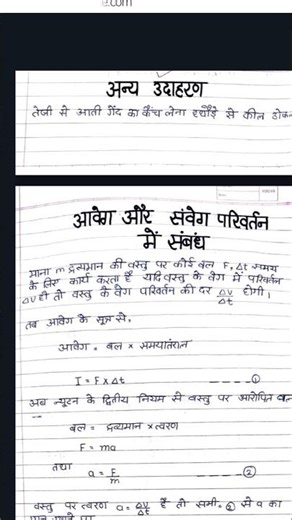 .com
अन्य उदाहरण
तेजी से आती गेंद का कैच लेना हथौड़े से कील ठोक
आवेग और संवेग परिवर्तन
में संबंध
माना m द्रव्यमान की वस्तु पर कोई बल F, Δt समय
के लिए कार्य करता है यदि वस्तु के वेग में परिवर्तन
ΔV हो तो वस्तु के वेग परिवर्तन की दर ΔV/Δt होगी।
तब आवेग के सूत्र से,
आवेग = बल × समयान्तराल
I = F × Δt ----- ①
अब न्यूटन के द्वितीय नियम से वस्तु पर आरोपित बल
बल = द्रव्यमान × त्वरण
F = ma
तथा
a = F/m ----- ②
वस्तु पर त्वरण a = ΔV/Δt है तो समी. ② से a का